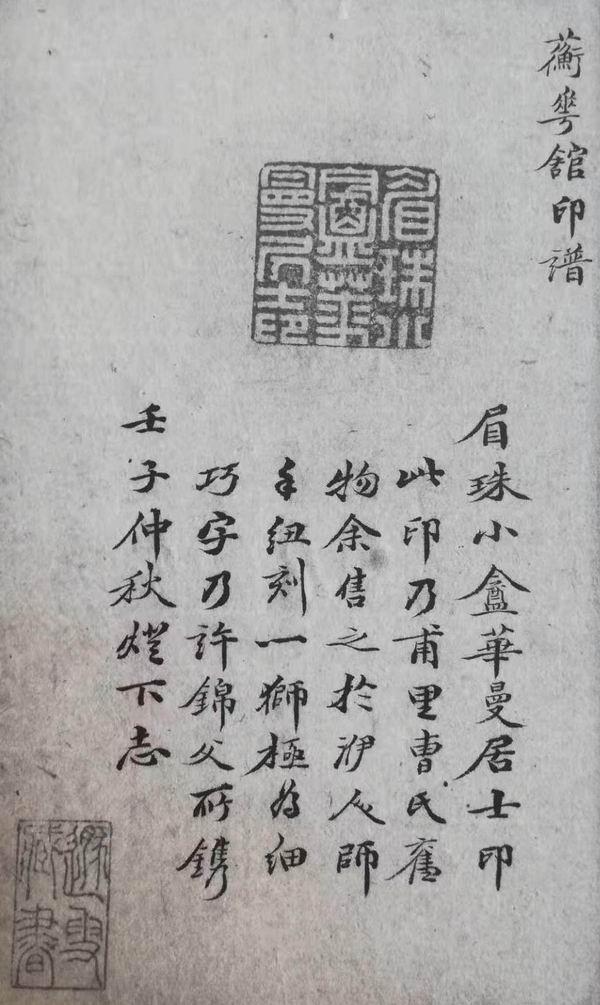 蘅𠌶舘印譜
眉珠小
盦華
曼居士印
眉珠小盦華曼居士印
此印乃甫里曹氏舊
物余售之於師
手紐刻一獅極為細
巧字乃許錦父所鐫
壬子仲秋燈下志
遯叟
藏書